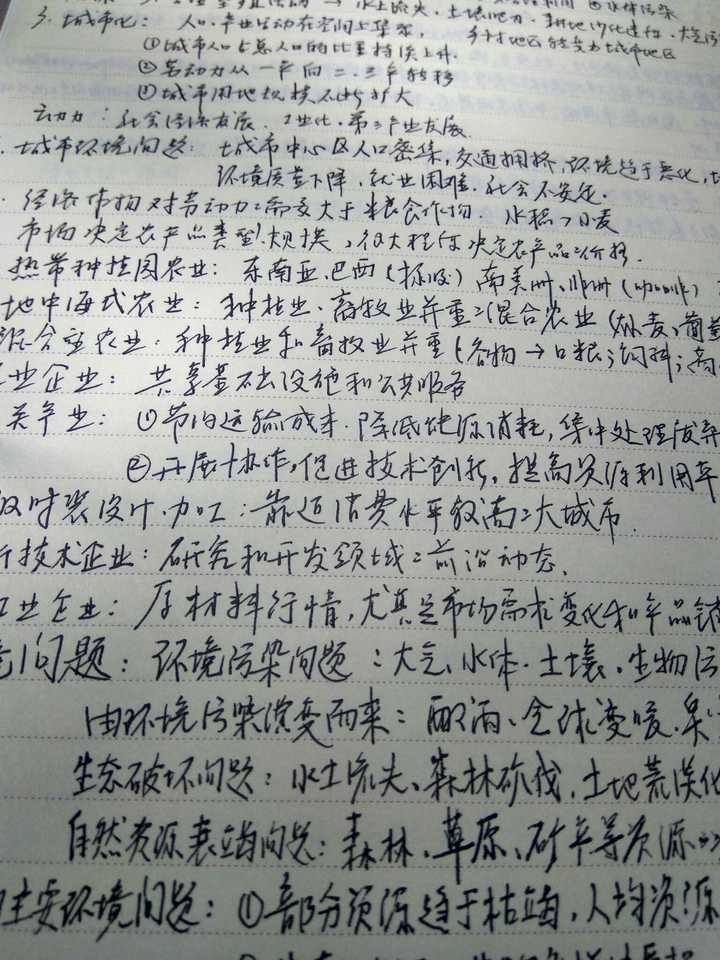 水土流失、土壤肥力、耕地沙化
3. 城市化：人口、产业活动在空间上集聚，乡村地区转变为城市地区
①城市人口占总人口的比重持续上升.
②劳动力从一产向二、三产转移
③城市用地规模不断扩大
动力：社会经济发展、工业化、第三产业发展.
城市环境问题：城市中心区人口密集，交通拥挤，环境趋于恶化，
环境质量下降，就业困难，社会不安定.
经济作物对劳动力之需多大于粮食作物. 水稻>小麦
市场决定农产品类型、规模，很大程度决定农产品之价格.
热带种植园农业：东南亚、巴西（橡胶）南美洲、非洲（咖啡）
地中海式农业：种植业、畜牧业并重之混合农业（
混合业农业：种植业和畜牧业并重（谷物→口粮；饲料；
业企业：共享基础设施和公共服务
关产业：①节约运输成本、降低能源消耗，集中处理废弃
②开展协作，促进技术创新，提高资源利用率
及时装设计、加工：靠近消费水平较高之大城市.
技术企业：研究和开发领域之前沿动态.
工业企业：原材料行情，尤其是市场需求变化和产品销
问题：环境污染问题：大气、水体、土壤、生物污
由环境污染演变而来：酸雨、全球变暖、臭
生态破坏问题：水土流失、森林砍伐，土地荒漠化
自然资源衰竭问题：森林、草原、矿产等资源
主要环境问题：①部分资源趋于枯竭，人均资源